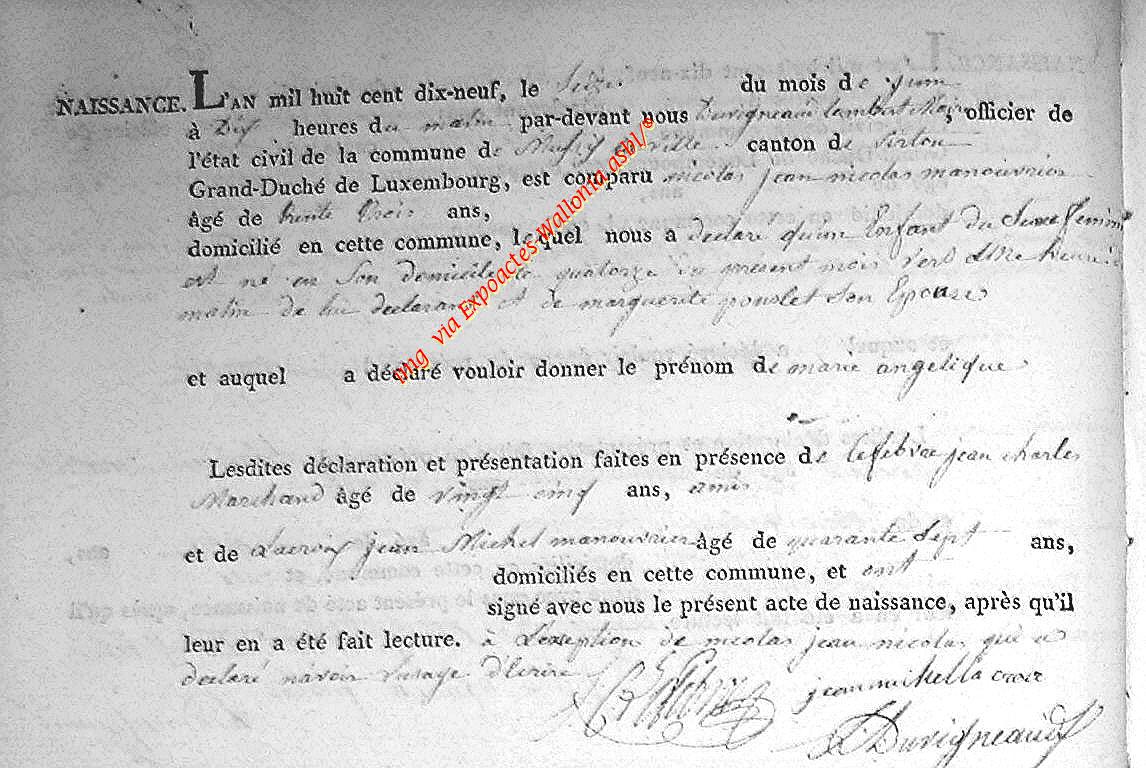 NAISSANCE. L'AN mil huit cent dix-neuf, le Seize du mois de juin
à Dix heures du matin par-devant nous Duvigneaud lambert Maire, officier de
l'état civil de la commune de ville canton de virton
Grand-Duché de Luxembourg, est comparu nicolas jean nicolas manouvrier
âgé de trente trois ans,
domicilié en cette commune, lequel nous a declaré qu'un Enfant du Sexe feminin
est né en Son domicile le quatorze du présent mois vers heures du
matin de lui declarant et de marguerite ponslet Son Epouse
et auquel a déclaré vouloir donner le prénom de marie angelique
Lesdites déclaration et présentation faites en présence de lefebvre jean charles
Marchand âgé de vingt cinq ans, amis
et de Lacroix jean Michel manouvrier âgé de quarante Sept ans,
domiciliés en cette commune, et ont
signé avec nous le présent acte de naissance, après qu'il
leur en a été fait lecture. à L'exeption de nicolas jean nicolas qui a
declaré n'avoir L'usage d'Ecrire
jean michel la croix
L Duvigneaud
png via Expoactes-Wallonia.asbl/©